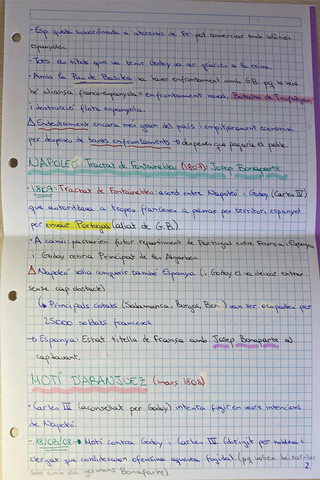 - Esp. queda subordinada a interessos de Fr. pot comerciar amb colònies
espanyoles.
- Tots els títols que va tenir Godoy va ser gràcies a la reina.
- Amb la Pau de Basilea va haver enfrontament amb G.B. pq hi havia
bé aliança franco-espanyola = enfrontament naval, Batalla de Trafalgar
i destrucció flota espanyola.
Δ Endeutament encara més gran del país i empitjorament econòmic
per despeses de tants enfrontaments → despeses que pagarà el poble.
NAPOLEÓ. Tractat de Fontainebleau (1807): Josep Bonaparte
- 1807: Tractat de Fontainebleau: acord entre Napoleó i Godoy (Carles IV)
que autoritzava a tropes franceses a passar per territori espanyol
per envair Portugal (aliat de G.B.)
· A canvi: pactarien futur repartiment de Portugal entre França, Espanya
i Godoy com a Príncipat de los Algarbes.
Δ Napoleó volia conquerir també Espanya (i Godoy el va deixar entrar
sense cap obstacle)
↳ Principals ciutats (Salamanca, Burgos, Bcn...) van ser ocupades per
25000 soldats francesos
→ Espanya: Estat titella de França amb Josep Bonaparte al
capdavant.
MOTÍ D'ARANJUEZ (març 1808)
- Carles IV (aconsellat per Godoy) intenta fugir en veure intencions
de Napoleó.
- 18/03/08 → Motí contra Godoy i Carles IV (dirigit per noblesa i
clergat que consideraven ofensiva aquesta fugida) (pq volien
germans Bonaparte)
2